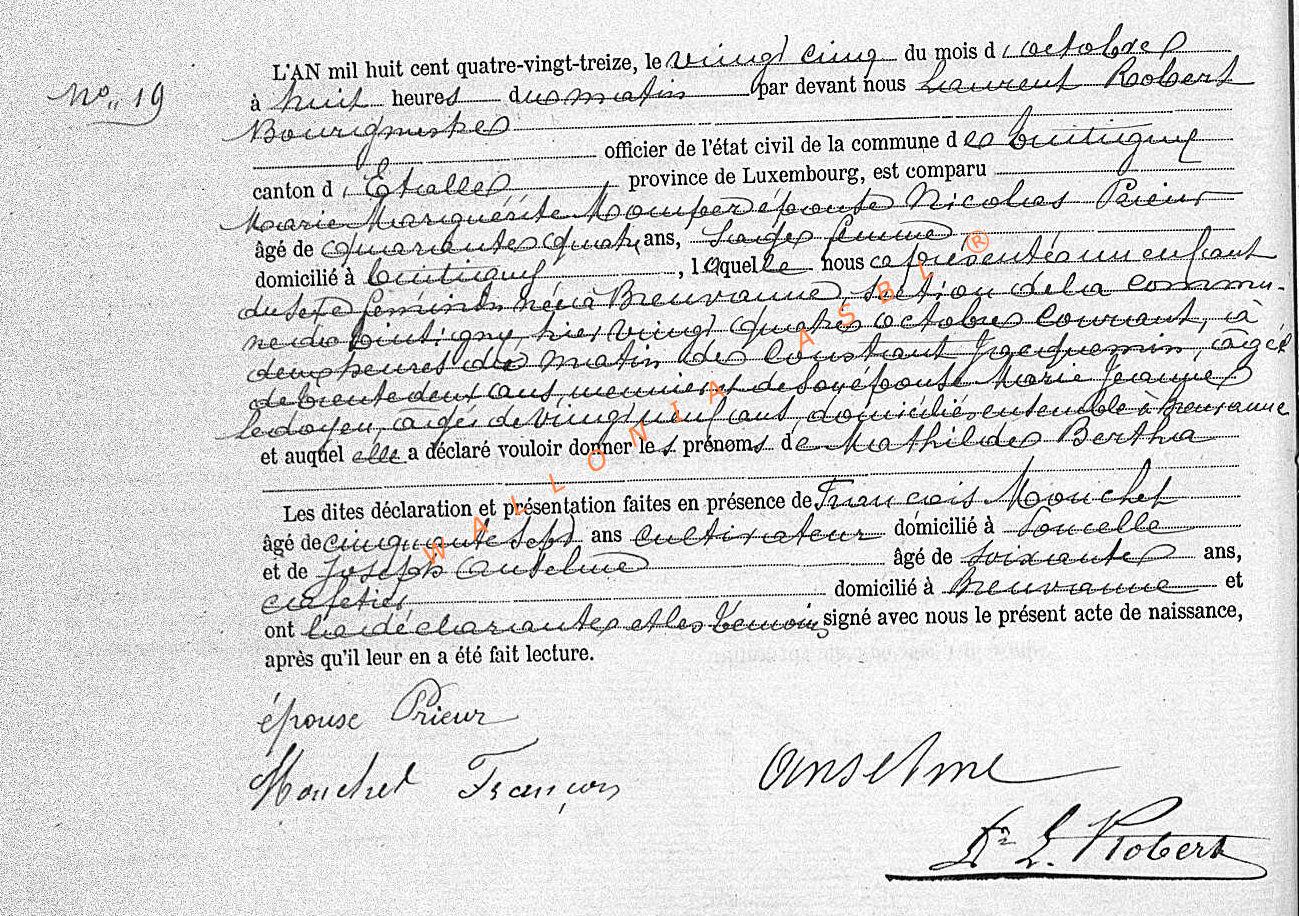 No. 19
L'AN mil huit cent quatre-vingt-treize, le vingt cinq du mois d'octobre
à huit heures du matin par devant nous Laurent Robert
Bourgmestre
officier de l'état civil de la commune de Tintigny
canton d'Etalle, province de Luxembourg, est comparu
Marie Marguérite épouse Nicolas Prieur
âgé de quarante quatre ans, Sage femme
domicilié à Tintigny, laquelle nous a présenté un enfant
du sexe féminin né à Breuvanne, section de la commu-
ne de Tintigny, hier vingt quatre octobre courant, à
deux heures du matin de Constant Jacquemin, âgé
de trente deux ans, meunier et de son épouse Marie Jeanne
Ledoyen, âgée de vingt neuf ans, domiciliés ensemble à Breuvanne
et auquel elle a déclaré vouloir donner les prénoms de Mathilde Bertha
Les dites déclaration et présentation faites en présence de François Mouchet
âgé de cinquante sept ans cultivateur domicilié à
et de Joseph Anselme âgé de soixante ans,
cafetier domicilié à Breuvanne et
ont la déclarante et les témoins signé avec nous le présent acte de naissance,
après qu'il leur en a été fait lecture.
épouse Prieur
Mouchet François Anselme
Dr L. Robert
WALLONIA ASBL ®